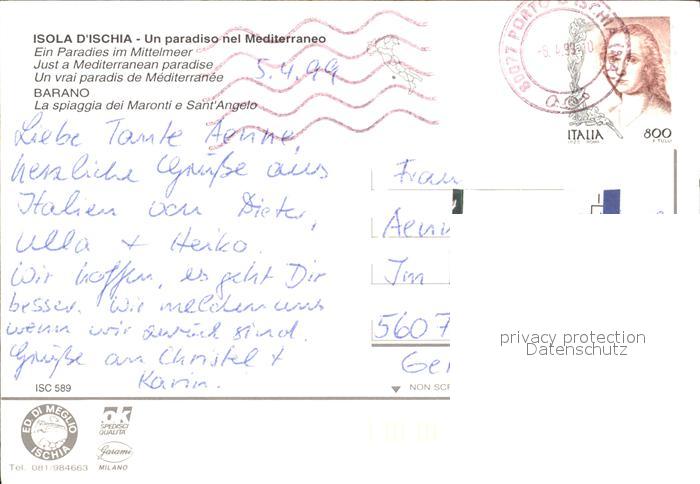 ISOLA D'ISCHIA - Un paradiso nel Mediterraneo
Ein Paradies im Mittelmeer
Just a Mediterranean paradise
Un vrai paradis de Méditerranée
BARANO
La spiaggia dei Maronti e Sant'Angelo
5.4.99
80077 PORTO D'ISCHIA (NA)
-6.4.99-10
ITALIA 800
Liebe Tante Aenne,
herzliche Grüße aus
Italien von Dieter,
Ulla + Heiko.
Wir hoffen, es geht Dir
besser. Wir melden uns
wenn wir zurück sind.
Grüße an Christel +
Karin.
Frau
Aenn
Im
5607
Ger
privacy protection
Datenschutz
ISC 589
NON SCR
ED. DI MEGLIO
ISCHIA
OK
SPEDISCI
QUALITÀ
Garami
MILANO
Tel. 081/984663